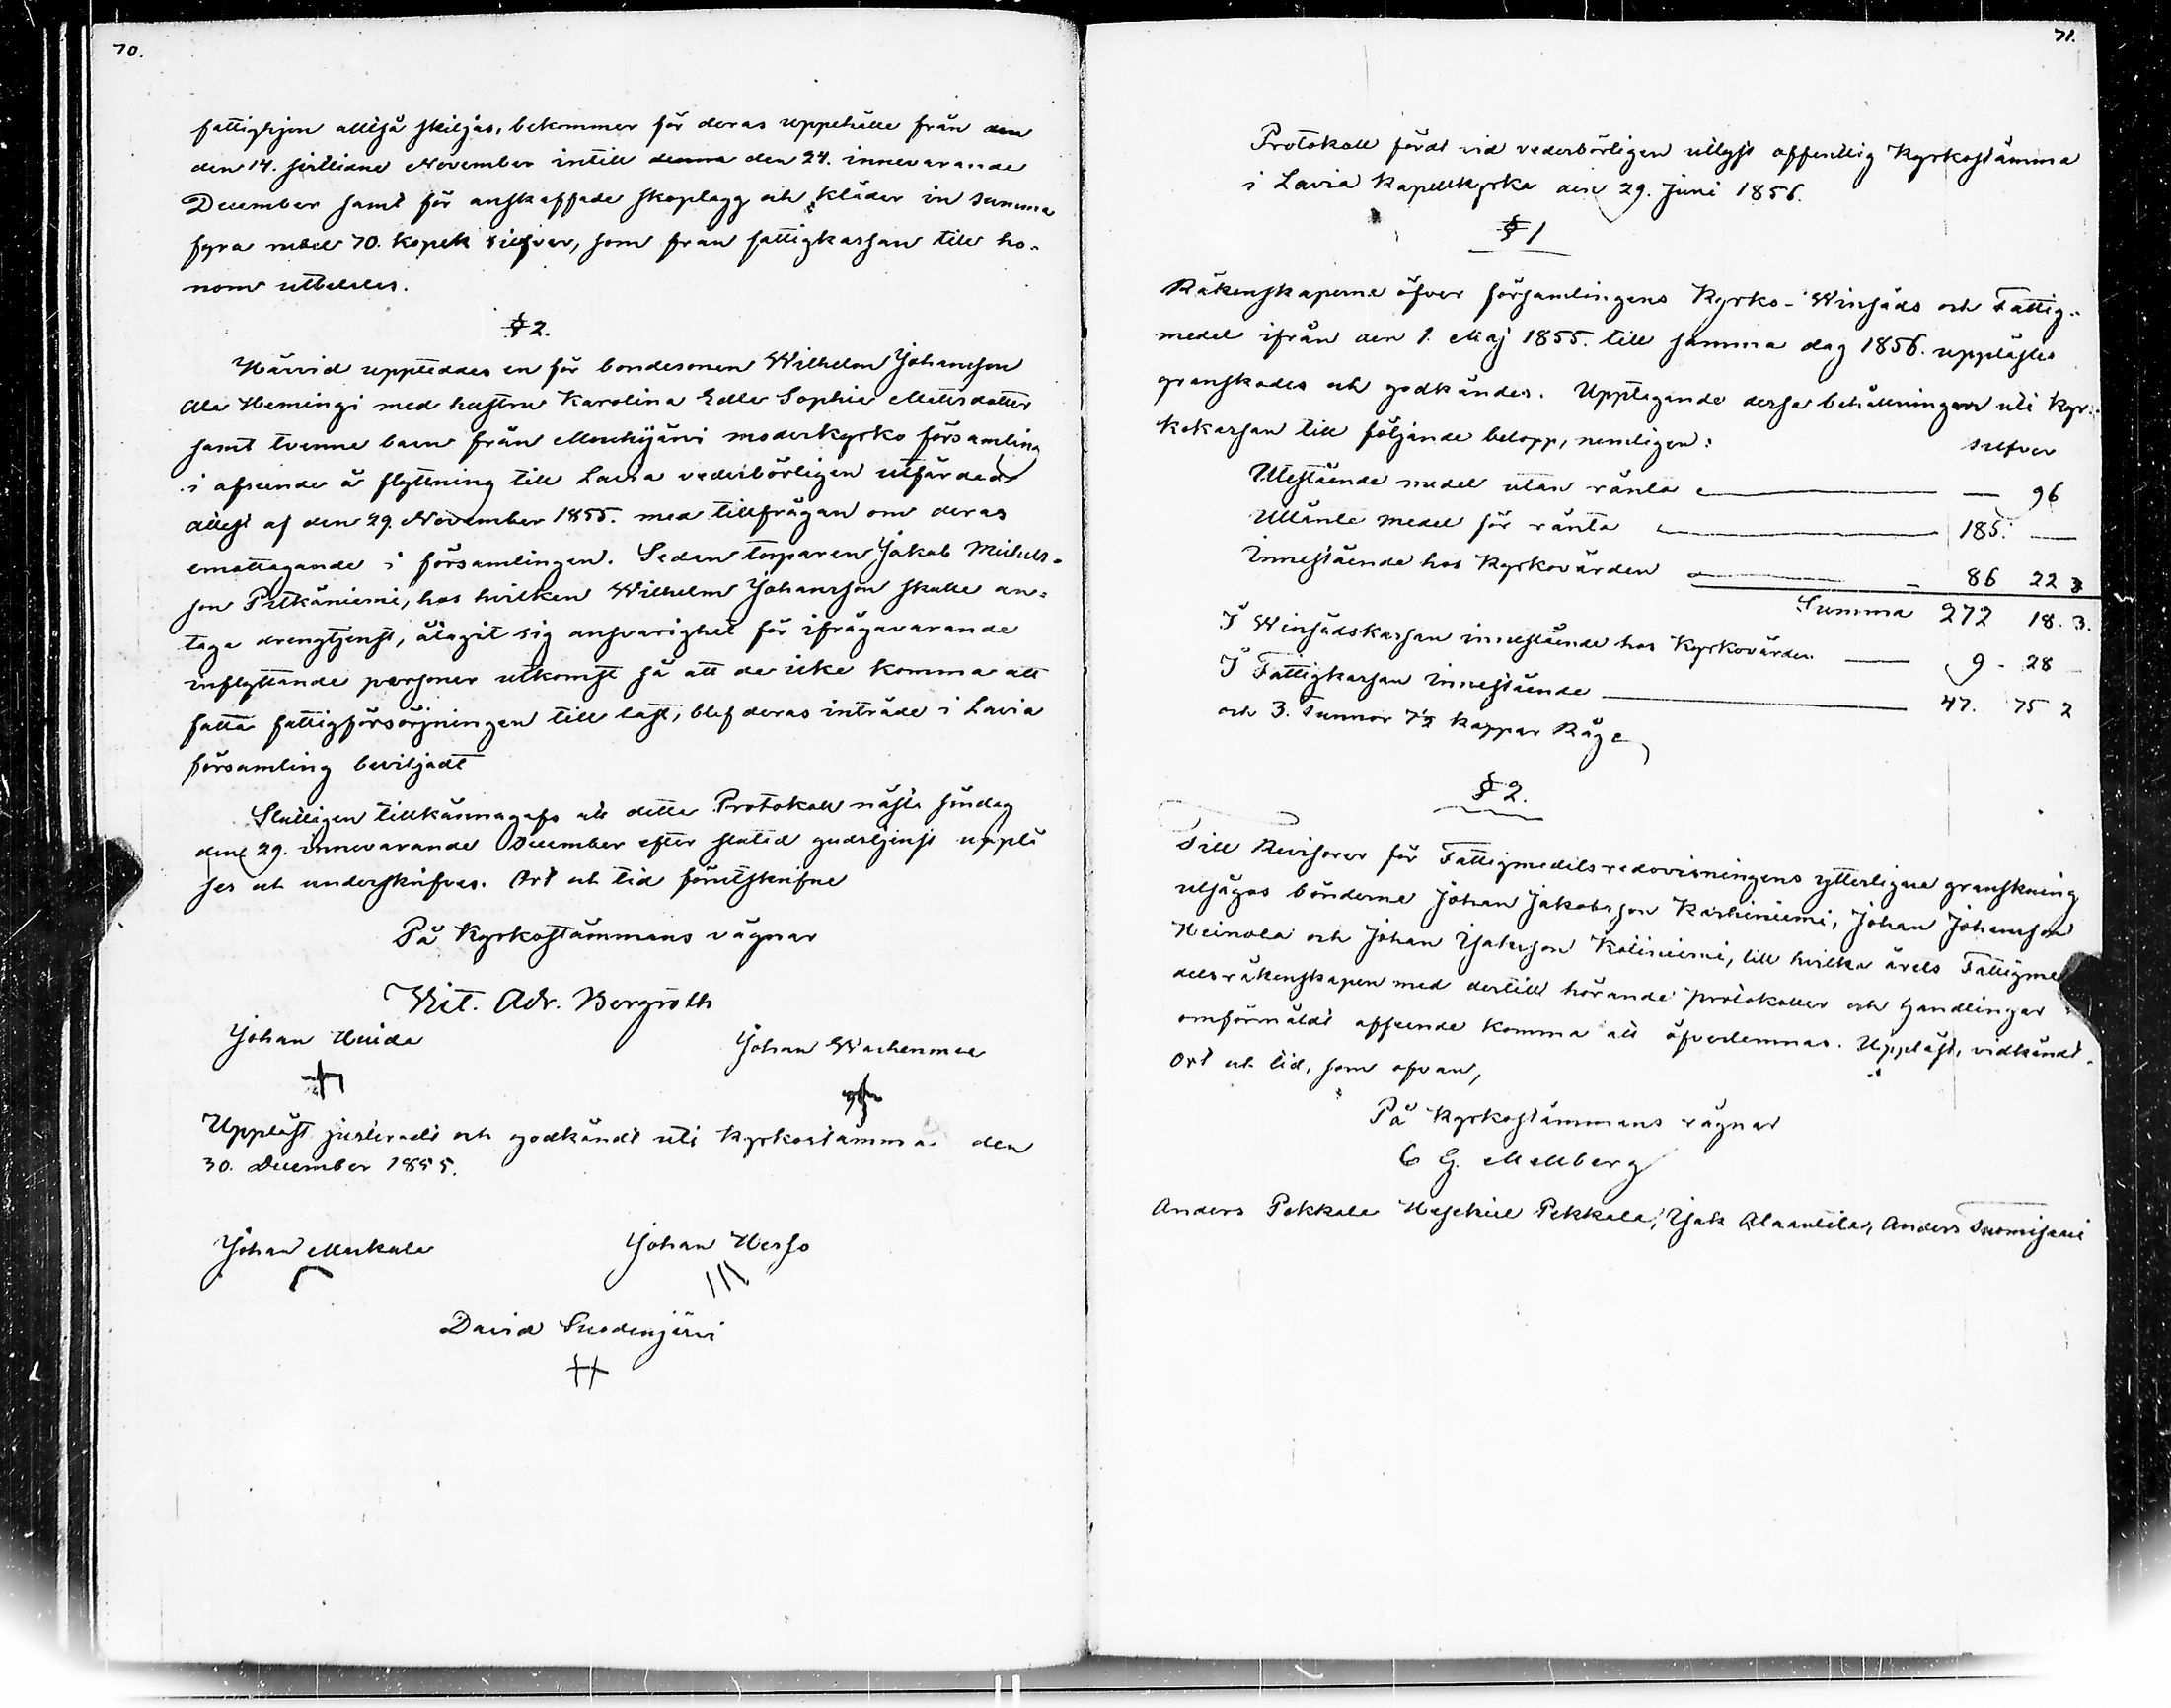 70.
fattighjon alltså skiljas, bekommer för deras uppehälle från den
den 14. sistlidne November intill denna den 24. innevarande
December samt för anskaffade skoplagg och kläder in summa
fyra rubel 70. kopek silfver, som från fattigkassan till ho-
nom utbetales.
§ 2.
Härvid uppteddes en för bondesonen Wilhelm Johansson
Ala Hemingi med hustru Karolina Edla Sophia Mattsdotter
samt tvenne barn från Mouhijärvi moderkyrko församling
i afseende å flyttning till Lavia vederbörligen utfärdad
attest af den 29. November 1855. med tillfrågan om deras
emottagande i församlingen. Sedan torparen Jakob Michels-
son Pitkäniemi, hos hvilken Wilhelm Johansson skulle an-
taga drengtjenst, åtagit sig ansvarighet för ifrågavarande
inflyttande personer utkomst så att de icke komma att
falla fattigförsörjningen till last, blef deras inträde i Lavia
församling beviljadt
Slutligen tillkännagafs att detta Protokoll nästa söndag
den 29. innevarande December efter slutad gudstjenst upplä
ses och underskrifves. Ort och tid förutskrifne
På Kyrkostämmans vägnar
Vit. Adr. Bergroth
Johan Huida
Johan Wachenmaa
Uppläst justeradt och godkändt uti Kyrkostämma den
30. December 1855.
Johan Markula
Johan Herso
David Suodenjärvi
71.
Protokoll fördt vid vederbörligen utlyst offentlig Kyrkostämma
i Lavia Kapellkyrka den 29. Juni 1856.
§ 1
Räkenskaperna öfver församlingens Kyrko- Winsäds och Fattig-
medel ifrån den 1. Maj 1855. till samma dag 1856. upplästes
granskades och godkändes. Upptagande dessa behållningar uti Kyr-
kokassan till följande belopp, nemligen:
silfver
Utestående medel utan ränta — — 96
Utlånte medel för ränta — 185. —
Innestående hos Kyrkovärden — 86 22 3
Summa 272 18. 3.
I Winsädskassan innestående hos Kyrkovärden — 9 - 28
I Fattigkassan innestående — 47. 75 2
och 3. tunnor 7½ kappar Råg
§ 2.
Till Revisorer för Fattigmedelsredovisningens ytterligare granskning
utsågos bönderne Johan Jakobsson Karhiniemi, Johan Johansson
Heinola och Johan Isaksson Kotiniemi, till hvilka årets Fattigme
delsräkenskaper med dertill hörande protokoller och handlingar
omförmäldt afseende komma att öfverlemnas. Uppläst, vidkändt.
Ort och tid, som ofvan,
På Kyrkostämmans vägnar
C G. Mellberg
Anders Pekkala Heschiel Pekkala, Isak Alaantila, Anders Suomijärvi